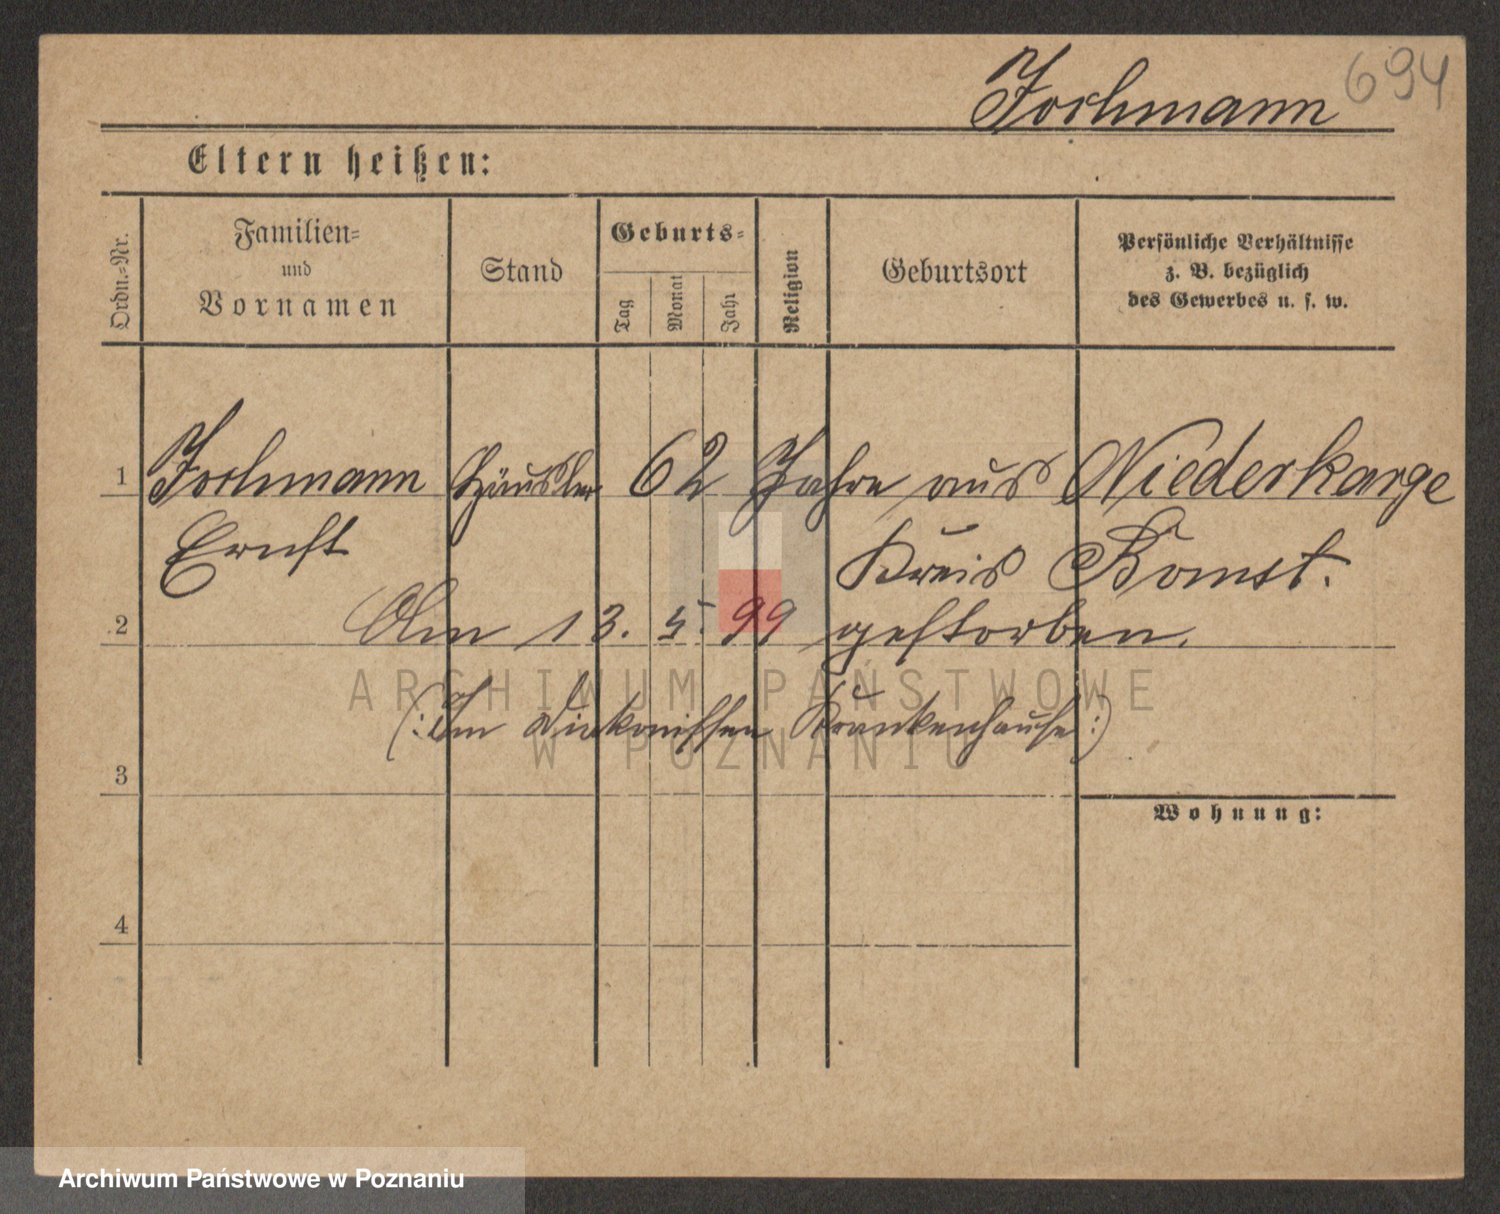 Jochmann 694
Eltern heißen:
Ordn.-Nr.
Familien-
und
Vornamen
Stand
Geburts-
Tag
Monat
Jahr
Religion
Geburtsort
Persönliche Verhältnisse
z. B. bezüglich
des Gewerbes u. s. w.
1 Jochmann Häusler 62 Jahre aus Niederkarge
Ernst Kreis Bomst.
2 Am 13. 5. 99 gestorben.
ARCHIWUM PAŃSTWOWE
(: Im Diakonissen Krankenhause :)
W POZNANIU
3
Wohnung:
4
Archiwum Państwowe w Poznaniu